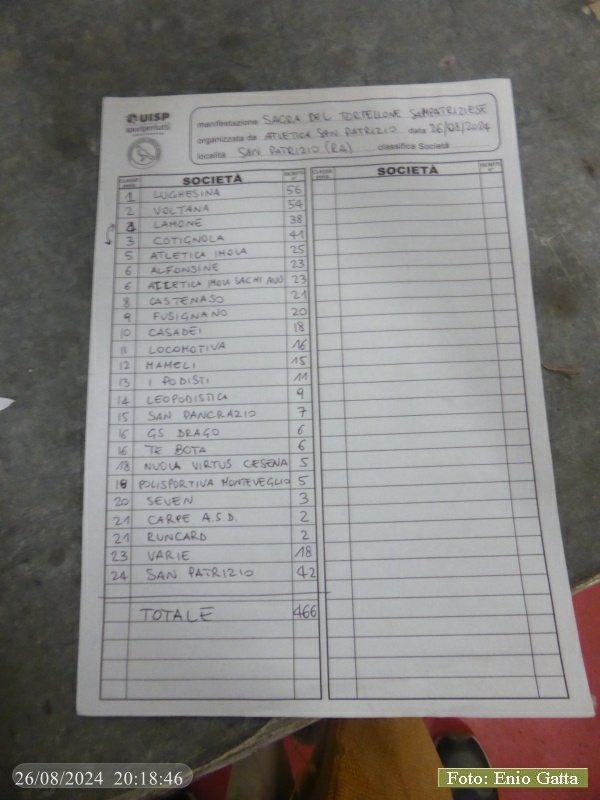 UISP
sportpertutti
manifestazione SAGRA DEL TORTELLONE SANPATRIZIESE
organizzata da ATLETICA SAN PATRIZIO data 26/08/2024
località SAN PATRIZIO (RA) classifica Società
SOCIETÀ SOCIETÀ
1 LUGHESINA 56
2 VOLTANA 54
LAMONE 38
3 COTIGNOLA 41
5 ATLETICA IMOLA 25
6 ALFONSINE 23
6 ATLETICA IMOLA SACMI AVIS 23
8 CASTENASO 21
9 FUSIGNANO 20
10 CASADEI 18
11 LOCOMOTIVA 16
12 MAMELI 15
13 I PODISTI 11
14 LEOPODISTICA 9
15 SAN PANCRAZIO 7
16 GS DRAGO 6
16 TE BOTA 6
18 NUOVA VIRTUS CESENA 5
18 POLISPORTIVA MONTEVEGLIO 5
20 SEVEN 3
21 CARPE A.S.D. 2
21 RUNCARD 2
23 VARIE 18
24 SAN PATRIZIO 42
TOTALE 466
26/08/2024 20:18:46
Foto: Enio Gatta